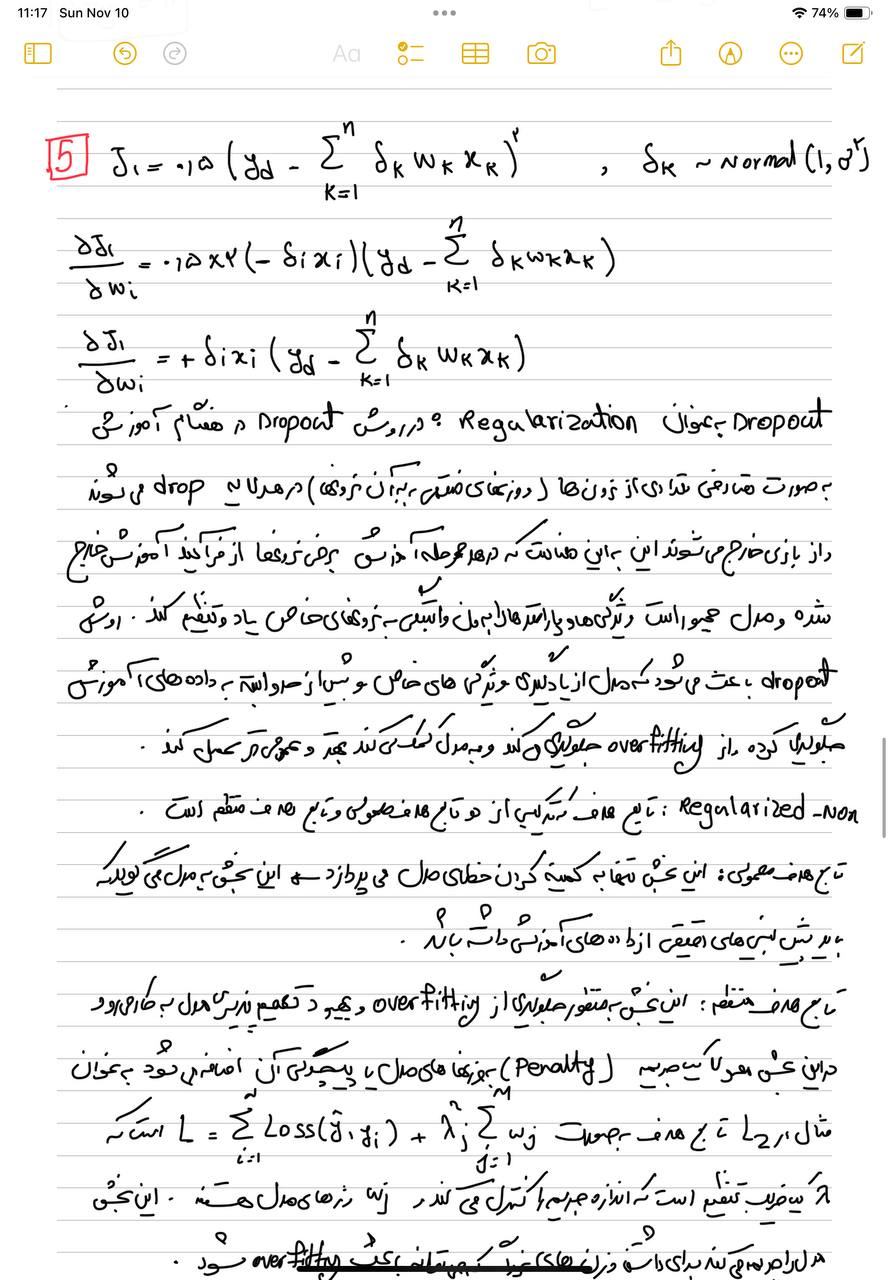 11:17 Sun Nov 10
74%
Aa
5 J₁ = ۰,۵ (y_d - Σ_{k=1}^{n} δ_k w_k x_k)^۲ , δ_k ~ Normal (1, σ^۲)
∂J₁/∂w_i = ۰,۵ x ۲ (- δ_i x_i) (y_d - Σ_{k=1}^{n} δ_k w_k x_k)
∂J₁/∂w_i = + δ_i x_i (y_d - Σ_{k=1}^{n} δ_k w_k x_k)
Dropout به عنوان Regularization : در روش Dropout در هنگام آموزش
به صورت تصادفی تعدادی از نرون ها (و وزنهای به آن نرونها) در هر لایه drop می شوند
و از بازی خارج می شوند این به این معناست که در هر مرحله آموزش برخی نرونها از فرآیند آموزش خارج
شده و مدل مجبور است ویژگی ها و پارامترها را بدون وابستگی به نرونهای خاص یاد و تنظیم کند . روش
dropout باعث می شود که مدل از یادگیری ویژگی های خاص و بیش از حد وابسته به داده های آموزش
جلوگیری کرده و از overfitting جلوگیری می کند و به مدل کمک می کند بهتر و عمومی تر عمل کند .
Regularized-Non : تابع هدف که ترکیبی از دو تابع هدف معمولی و تابع هدف منظم است .
تابع هدف معمولی : این بخش تنها به کمینه کردن خطای مدل می پردازد → این بخش به مدل می گوید که
باید پیش بینی های دقیقی از داده های آموزشی داشته باشد .
تابع هدف منظم : این بخش به منظور جلوگیری از overfitting و بهبود تعمیم پذیری مدل به کار می رود
در این بخش معمولا یک جریمه (Penalty) به وزنها های مدل یا پیچیدگی آن اضافه می شود به عنوان
مثال در L2 تابع هدف به صورت L = Σ_{i=1} Loss(ŷ, y_i) + λ Σ_{j=1}^{M} w_j^۲ است که
λ یک ضریب تنظیم است که اندازه جریمه را کنترل می کند و w_j وزن های مدل هستند . این بخش
مدل را جریمه می کند برای داشتن وزن های بزرگ که باعث overfitting شود .